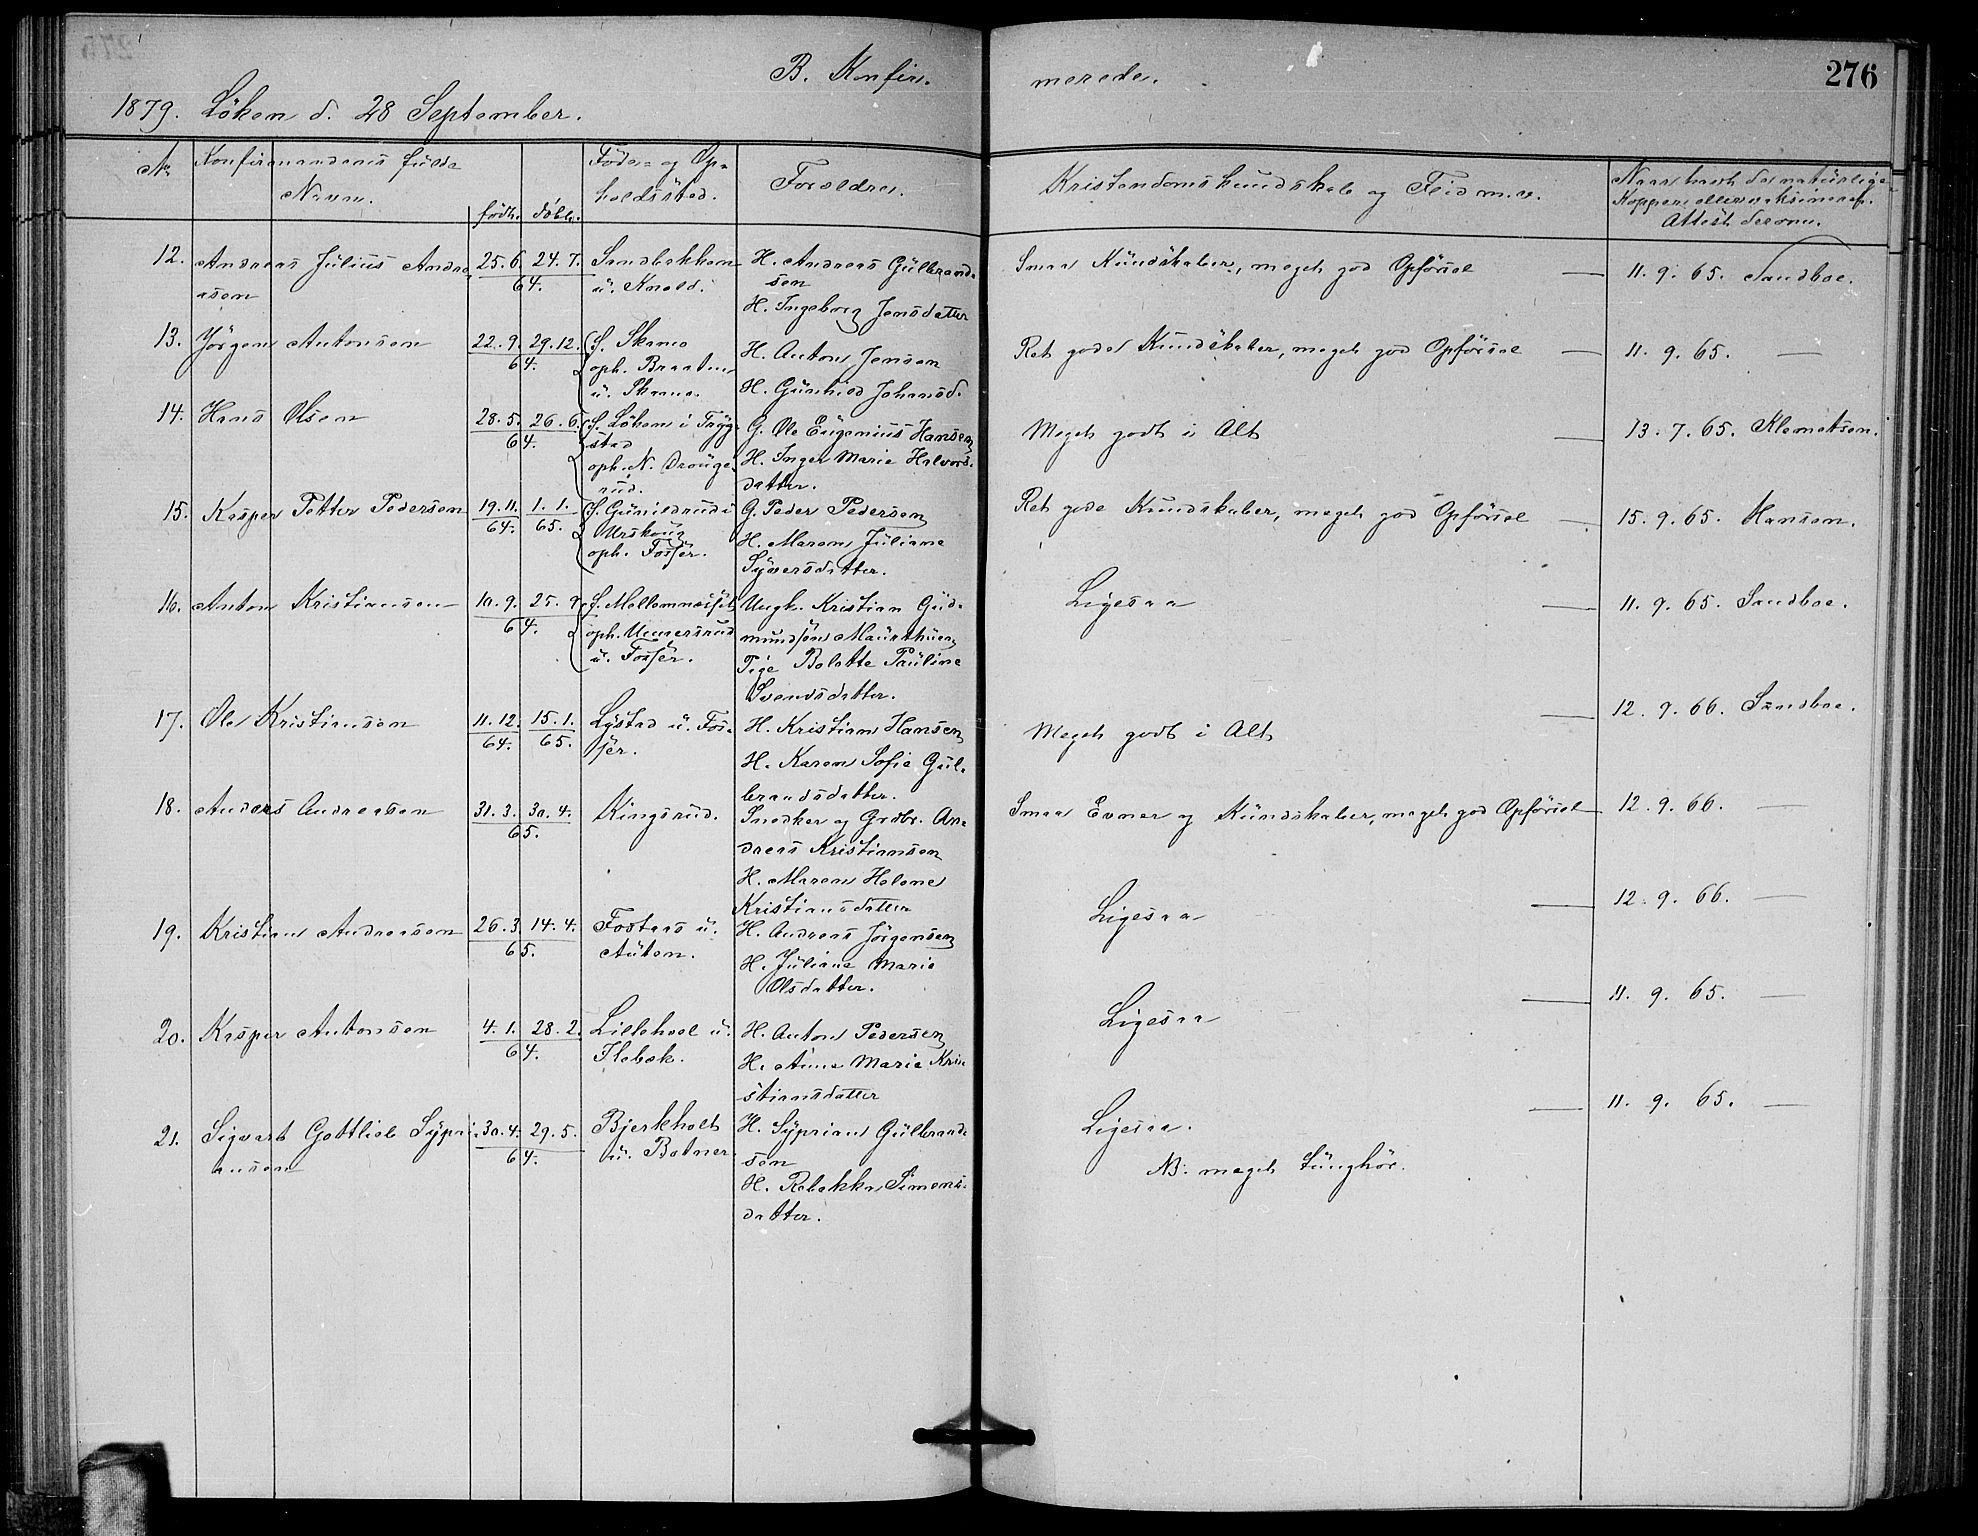 B. Konfirmerede.
276
1879. Löken d. 28 September.
No. Konfirmandens fulde Navn. født. döbt. Føde- og Opholdssted. Forældre. Kristendomskundskab og Flid m.v. Naar havt de naturlige Kopper eller vaksineret. Attest derom.
12. Andreas Julius Andreasen 25.6. 24.7. 64. Sandbakken u. Knold. H. Andreas Gulbrandsen
H. Ingeborg Jensdatter
Smaa Kundskaber, meget god Opførsel — 11. 9. 65. Sandboe.
13. Jörgen Antonsen 22.9. 29.12. 64. f. Skanse
oph. Braaten
u. Skanse. H. Anton Jensen
H. Gunhild Johansd.
Ret gode Kundskaber, meget god Opførsel — 11. 9. 65. —
14. Hans Olsen 28.5. 26.6. 64. f. Löken i Trygstad
oph. N. Drougerud. G. Ole Eugenius Hansen
H. Inger Marie Halvorsdatter.
Meget godt i Alt — 13. 7. 65. Klemetsen.
15. Kasper Petter Pedersen 19.11. 64. 1.1. 65. f. Gunildrud i
Urskoug
oph. Fosser. G. Peder Pedersen
H. Maren Juliane
Syversdatter.
Ret gode Kundskaber, meget god Opførsel — 15. 9. 65. Hansen.
16. Anton Kristiansen 10.9. 25.9. 64. f. Mellemnæsset
oph. Unnersrud
u. Fosser. Ungk. Kristian Gudmundsen Maurthuen
Pige Bolette Pauline
Svendsdatter.
Ligesaa — 11. 9. 65. Sandboe.
17. Ole Kristiansen 11.12. 64. 15.1. 65. Lystad u. Fosser. H. Kristian Hansen
H. Karen Sofie Gulbrandsdatter.
Meget godt i Alt — 12. 9. 66. Sandboe.
18. Anders Andreasen 31.3. 30.4. 65. Kingsrud. Snedker og Grdbr. Andreas Kristiansen
H. Maren Helene
Kristiansdatter
Smaa Evner og Kundskaber, meget god Opførsel — 12. 9. 66. —
19. Kristian Andreasen 26.3. 14.4. 65. Fostaas u.
Auten. H. Andreas Jörgensen
H. Juliane Marie
Olsdatter.
Ligesaa — 12. 9. 66. —
20. Kasper Antonsen 4.1. 28.2. 64. Lillehool u.
Ilebæk. H. Anton Pedersen
H. Anne Marie Kristiansdatter
Ligesaa — 11. 9. 65. —
21. Sigvart Gottlieb Sypriansen 30.4. 29.5. 64. Bjerkholt
u. Botner H. Syprian Gulbrandsen
H. Rebekka Simonsdatter.
Ligesaa. — 11. 9. 65. —
NB. meget tunghør.